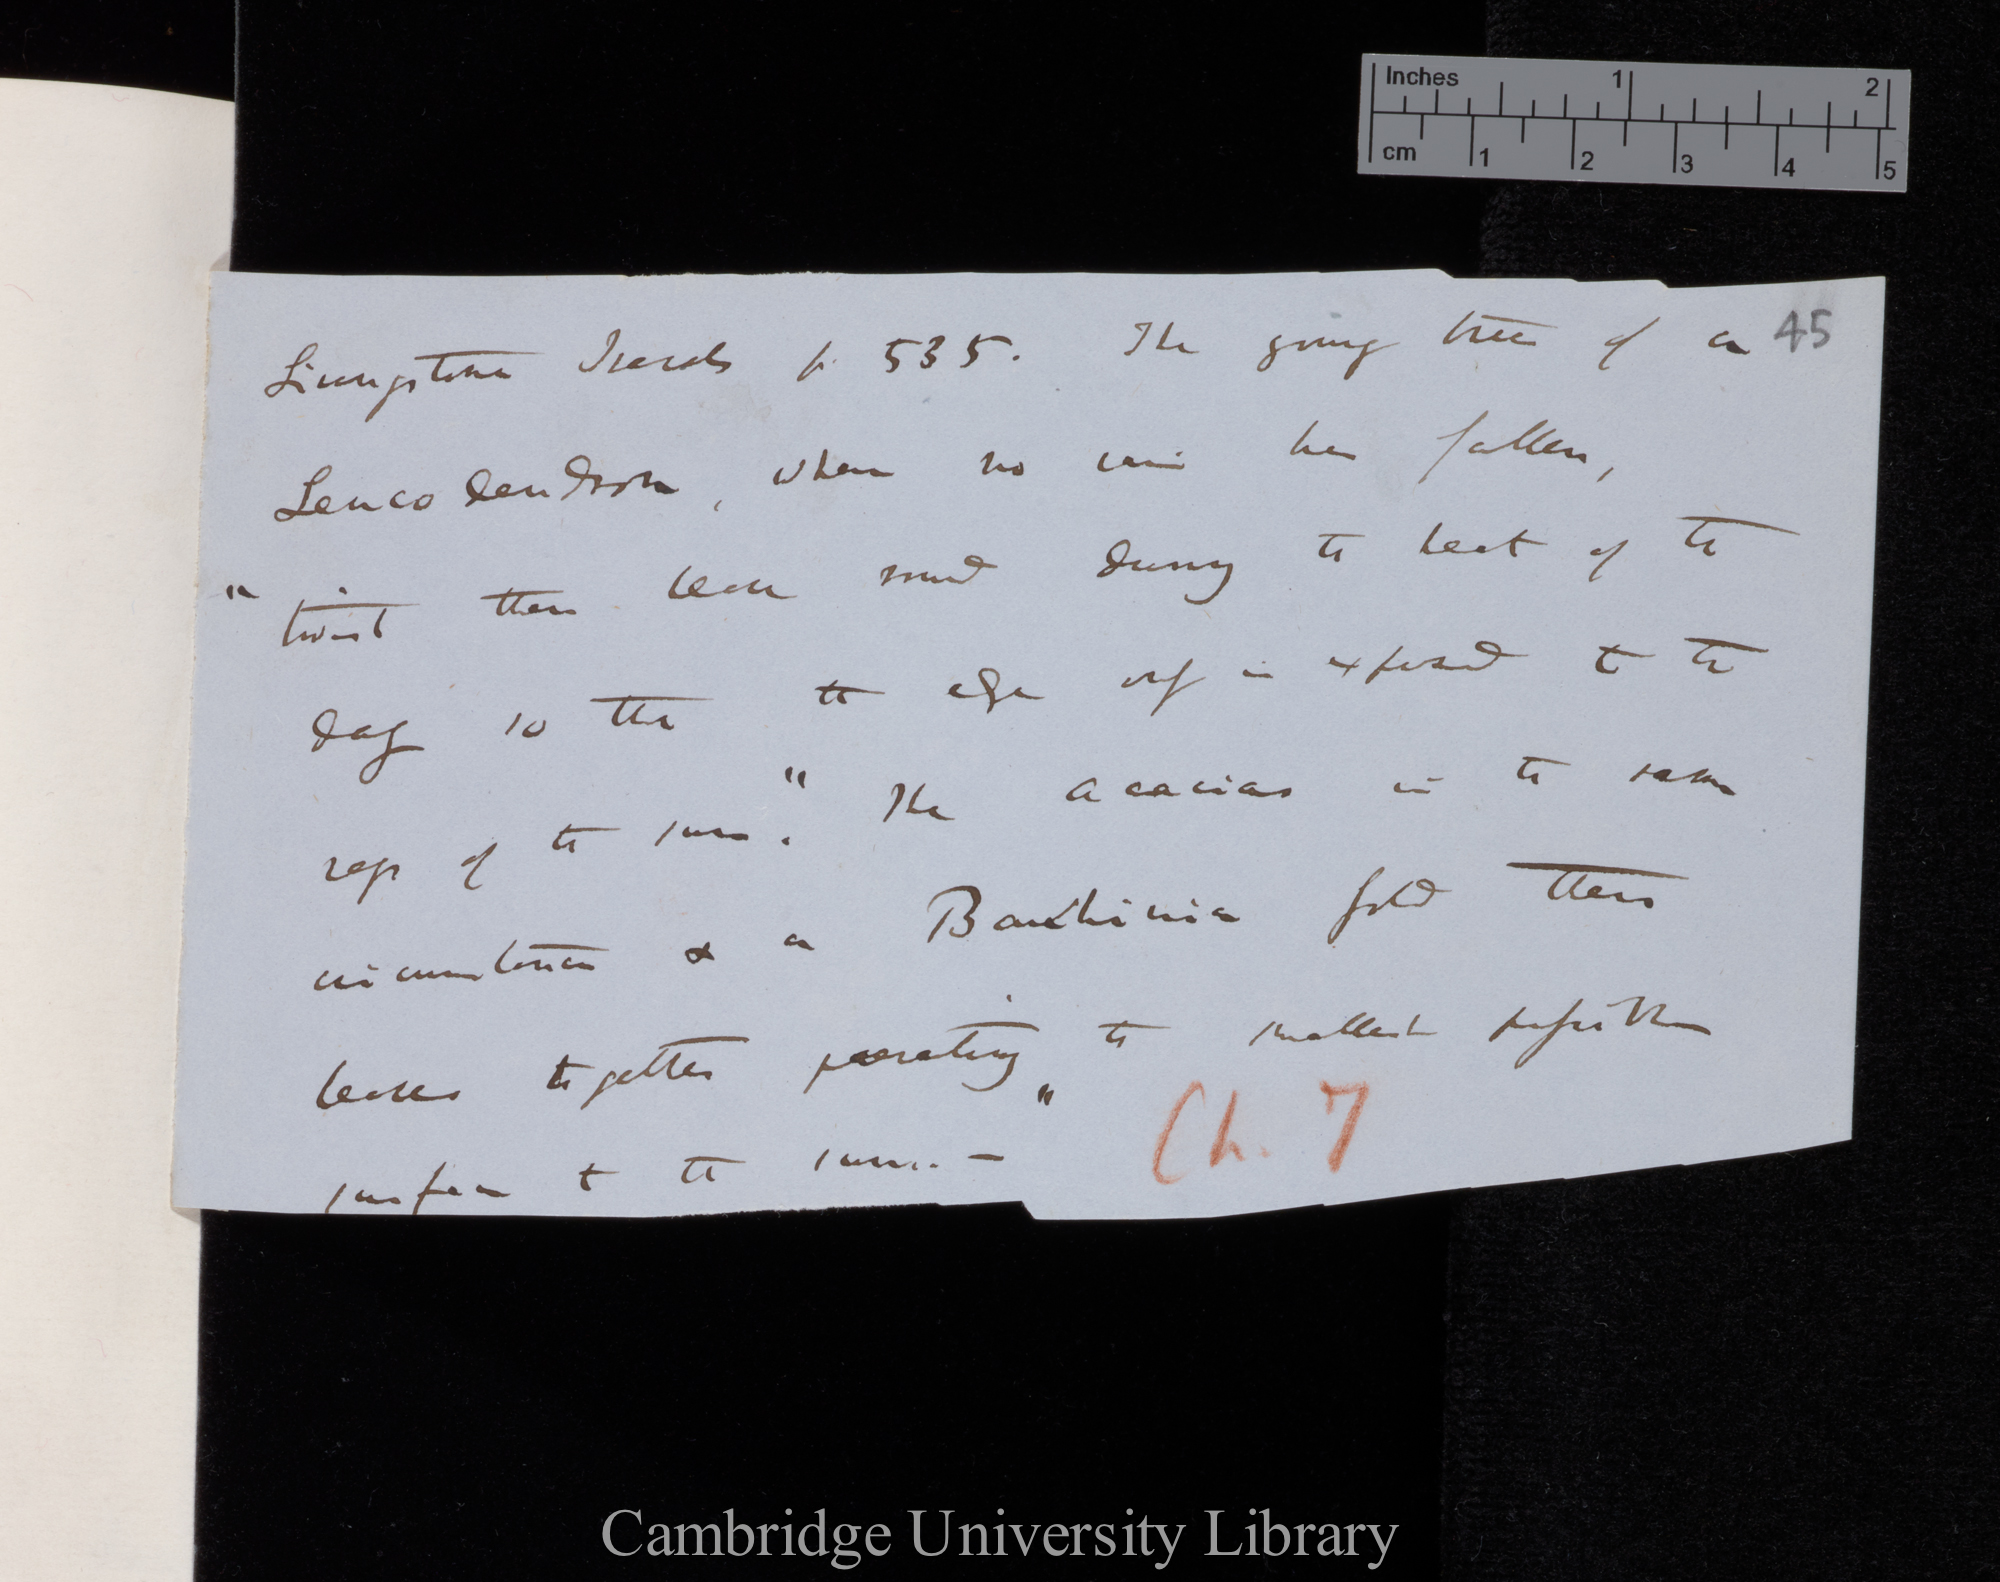 Inches 1 2
cm 1 2 3 4 5
45
Livingstone Travels p. 535. The young trees of a
Leucodendron, when no rain has fallen,
"twist their leaves round during the heat of the
day so that the edge only is exposed to the
rays of the sun." The acacias in the same
circumstances & a Bauhinia fold their
leaves together presenting the smallest possible
surface to the sun. — "
Ch. 7
Cambridge University Library